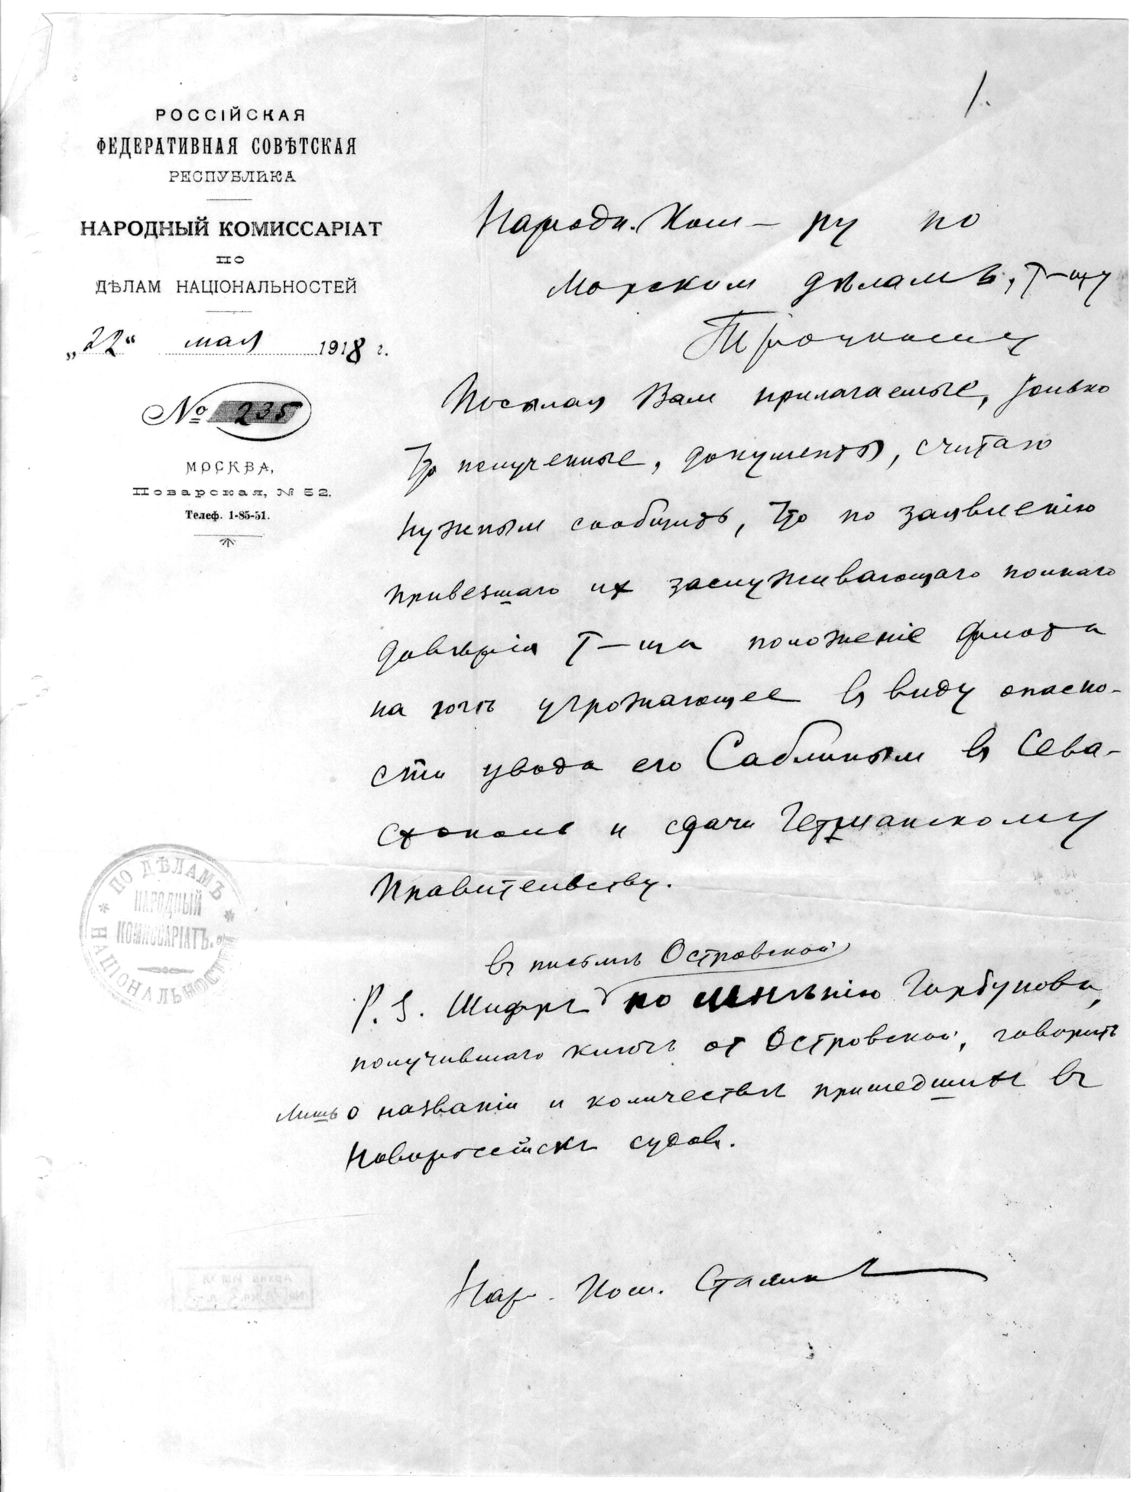 1.
РОССІЙСКАЯ
ФЕДЕРАТИВНАЯ СОВѢТСКАЯ
РЕСПУБЛИКА
НАРОДНЫЙ КОМИССАРІАТ
ПО
ДѢЛАМ НАЦІОНАЛЬНОСТЕЙ
„22“ мая 1918 г.
№ 235
МОСКВА,
Поварская, № 52.
Телеф. 1-85-51.
Народн. Ком-ру по
Морским дѣламъ, Т-щу
Троцкому
Посылая Вам прилагаемые, только
что полученные, документы, считаю
нужным сообщить, что по заявленію
привезшаго их заслуживающаго полнаго
довѣрія т-ща положеніе флота
на югѣ угрожающее в виду опасно-
сти увода его Саблиным в Сева-
стополь и сдачи Германскому
Правительству.
въ письмѣ Островской
P.S. Шифръ по мнѣнію Горбунова,
получившаго ключъ от Островской, говоритъ
лишь о названіи и количествѣ пришедшихъ въ
Новороссійскъ судов.
Нар. Ком. Сталин
ПО ДѢЛАМЪ
НАЦІОНАЛЬНОСТЕЙ
НАРОДНЫЙ
КОМИССАРІАТЪ.